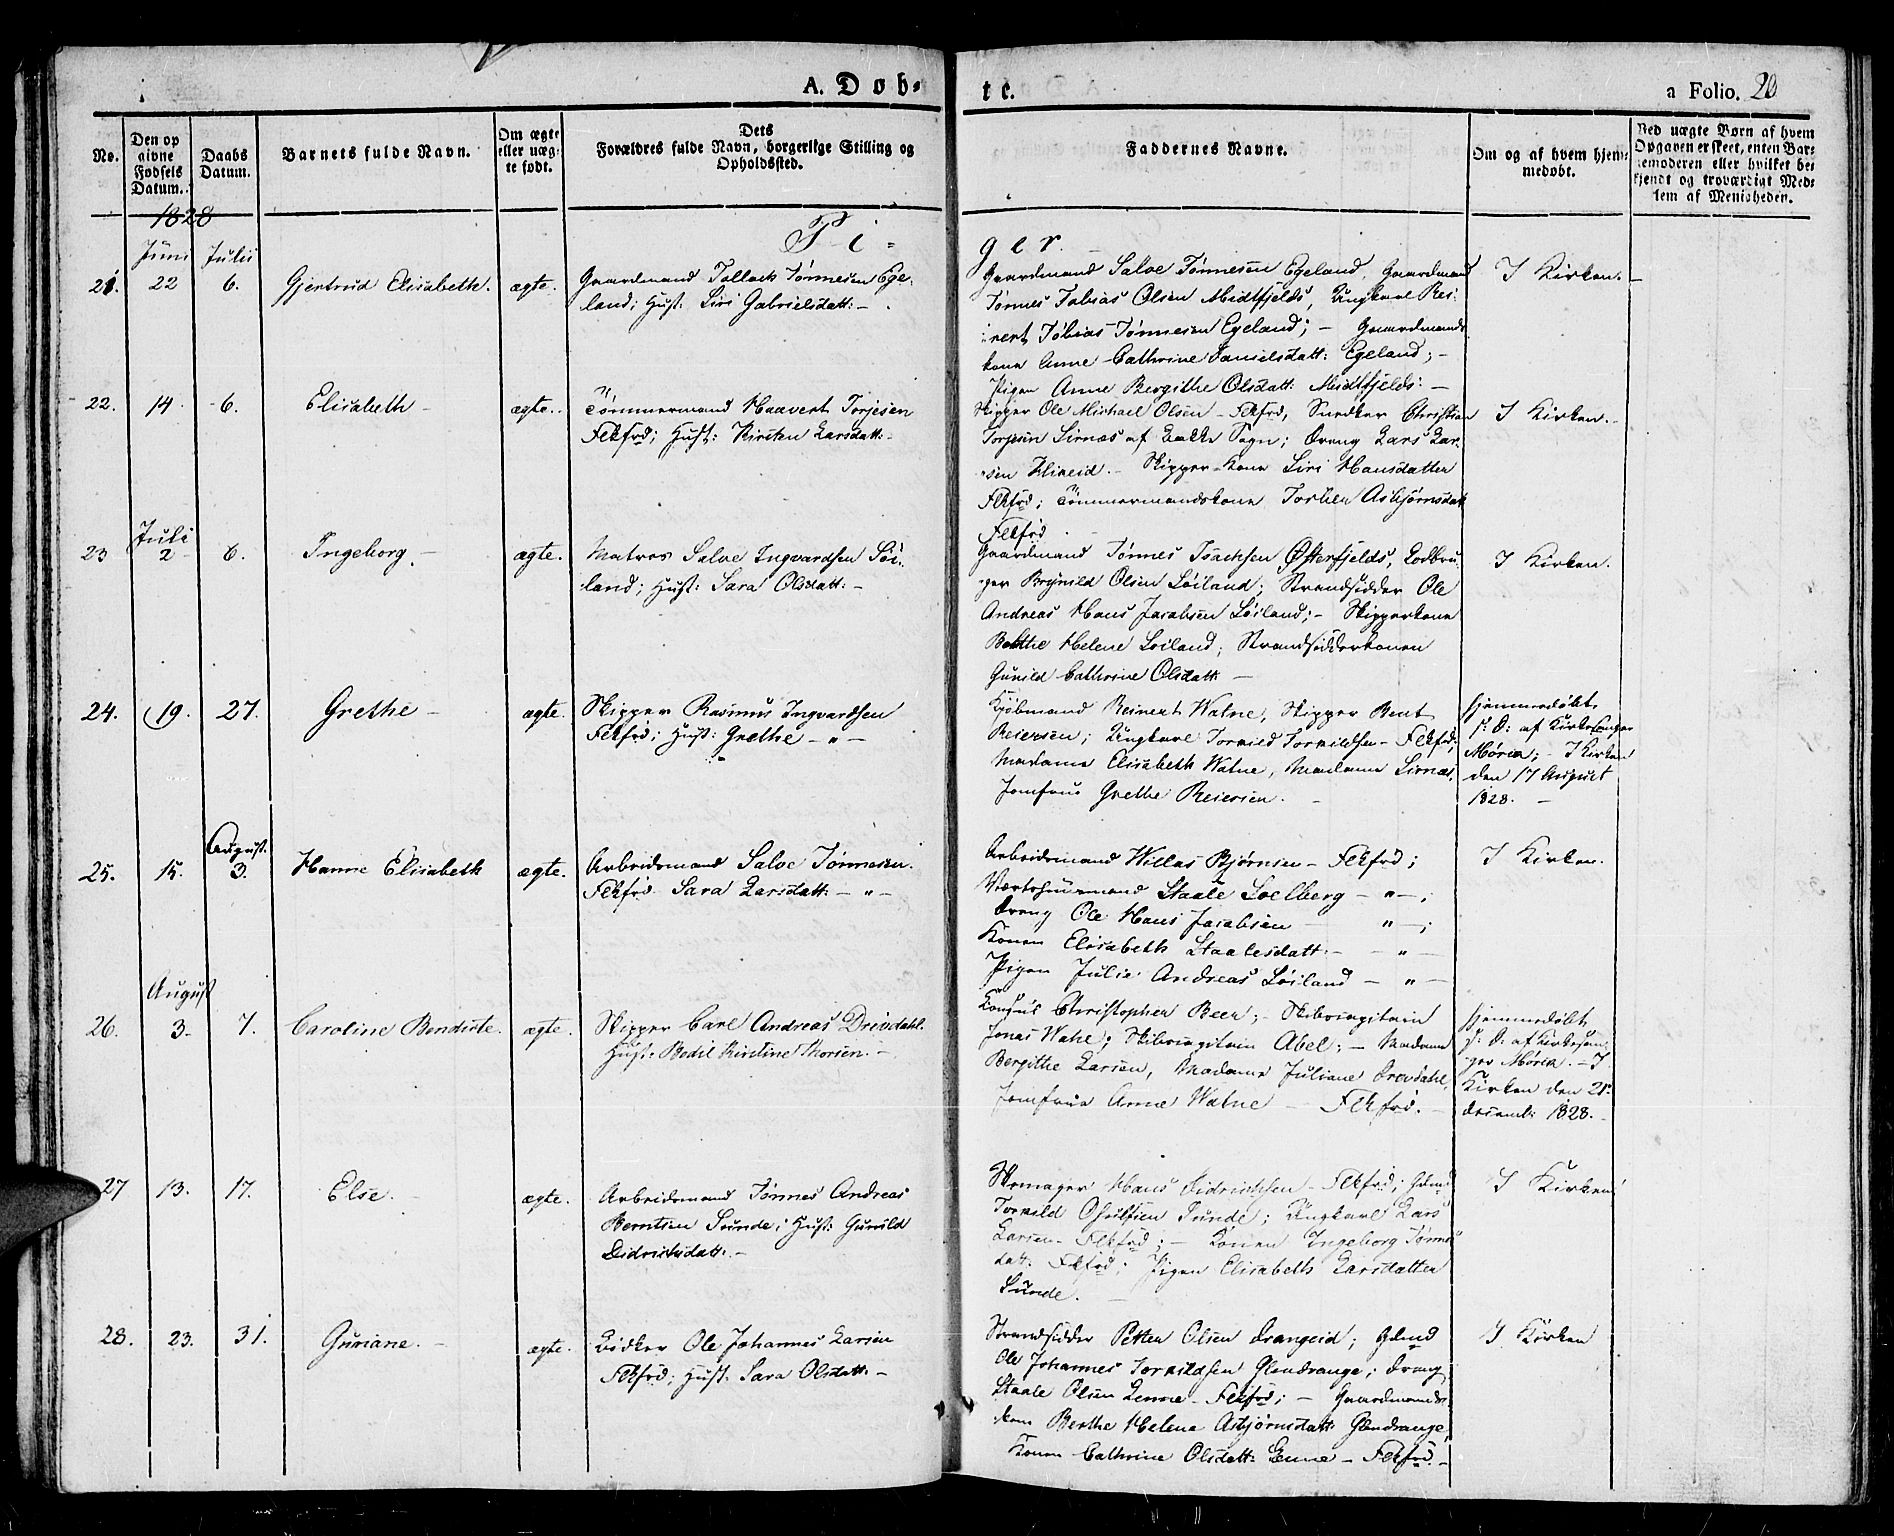 A. Døb-
te.
a Folio. 20
No.
Den op
givne
Fødsels
Datum.
Daabs
Datum.
Barnets fulde Navn.
Om ægte
eller uæg-
te født.
Dets
Forældres fulde Navn, borgerlige Stilling og
Opholdssted.
Faddernes Navne.
Om og af hvem hjem-
medøbt.
Ved uægte Børn af hvem
Opgaven er skeet, enten Bar-
nemoderen eller hvilket be-
kjendt og troværdigt Med-
lem af Menigheden.
1828
Pi-
ger.
Juni Julii
21. 22 6. Gjertrud Elisabeth. ægte.
Gaardmand Tollack Tönnesen Ege-
land; Hust: Siri Gabrielsdatt: -
Gaardmand Salve Tönnesen Egeland, Gaardmand
Tönnes Tobias Olsen Midtfjelds, Ungkarl Rei-
nert Tobias Tönnesen Egeland; - Gaardmands
kone Anne Cathrine Danielsdatt: Egeland; -
Pigen Anne Bergithe Olsdatt: Midtfjelds: -
I Kirken. -
22. 14 6. Elisabeth - ægte.
Tömmermand Haavert Torjesen
Flekfrd; Hust: Kirsten Larsdatt: -
Skipper Ole Michael Olsen - Flekfrd, Snedker Christian
Torjesen Sirnæs af Bakke Sogn; Dreng Lars Lar-
sen - Skipper-Kone Siri Hansdatter
Flekfrd; Tömmermandskone Torber Asbjörnsdatt
Flekfrd -
I Kirken. -
Juli
23 2 6. Ingeborg - ægte.
Matros Salve Ingvardsen Löi-
land; Hust: Sara Olsdatt: -
Gaardmand Tönnes Isachsen Østerfjelds, Lodbru-
ger Brynild Olsen Löiland; Strandsidder Ole
Andreas Hans Jacobsen Löiland; - Skipperkone
Berthe Helene Löiland; Strandsidderkonen
Gunild Cathrine Olsdatt: -
I Kirken.
24. 19. 27. Grethe - ægte.
Skipper Rasmus Ingvardsen
Flekfrd; Hust: Grethe - " -
Kjöbmand Reinert Watne, Skipper Bent
Reiersen; Ungkarl Torkild Torkildsen - Flekfrd;
Madame Elisabeth Watne, Madame Sirnæs,
Jomfrue Grethe Reiersen. -
Hjemmedöbt
s: D: af Kirkesanger
Mörch; - I Kirken
den 17 August
1828. -
August.
25. 15. 3. Hanne Elisabeth ægte.
Arbeidsmand Salve Tönnesen.
Flekfrd Sara Larsdatt: - " -
Arbeidsmand Willas Björnsen - Flekfrd;
Værtshuusmand Staale Soelberg - " - ;
Dreng Ole Hans Jacobsen - " - ;
Konen Elisabeth Staalesdatt: - " -
Pigen Julie Andreas Löiland - " -
I Kirken.
August
26. 3. 7. Caroline Bendicte. ægte.
Skipper Carl Andreas Drevdahl.
Hust: Bodil Kirstine Thorsen. -
Konsul Christopher Beer; - Skibscapitain
Jonas Watne; Skibscapitain Abel; - Madame
Bergithe Larsen, Madame Juliane Drevdahl,
Jomfrue Anne Watne - Flekfrd. -
Hjemmedöbt
s: D: af Kirkesan-
ger Mörch. - I
Kirken den 21
decemb: 1828. -
27 13. 17. Else. - ægte.
Arbeidsmand Tönnes Andreas
Berntsen Sunde; Hust: Gunild
Didrichsdatt: -
Skomager Hans Didrichsen - Flekfrd; Gmd
Torkild Osuldsen Sunde; Ungkarl Lars
Larsen - Flekfrd; - Konen Ingeborg Tönnes
datt: Flekfrd; Pigen Elisabeth Larsdatter
Sunde. -
I Kirken
28. 23. 31. Guriane. - ægte.
Bödker Ole Johannes Larsen
Flekfrd; Hust: Sara Olsdatt: -
Strandsidder Petter Olsen Drangeid; Gmd
Ole Johannes Torkildsen Glendrange; Dreng
Staale Olsen Lenne - Flekfrd; - Gaardmands
kone Berthe Helene Asbjörnsdatt: Glendrange;
Konen Cathrine Olsdatt: Lenne - Flekfrd. -
I Kirken